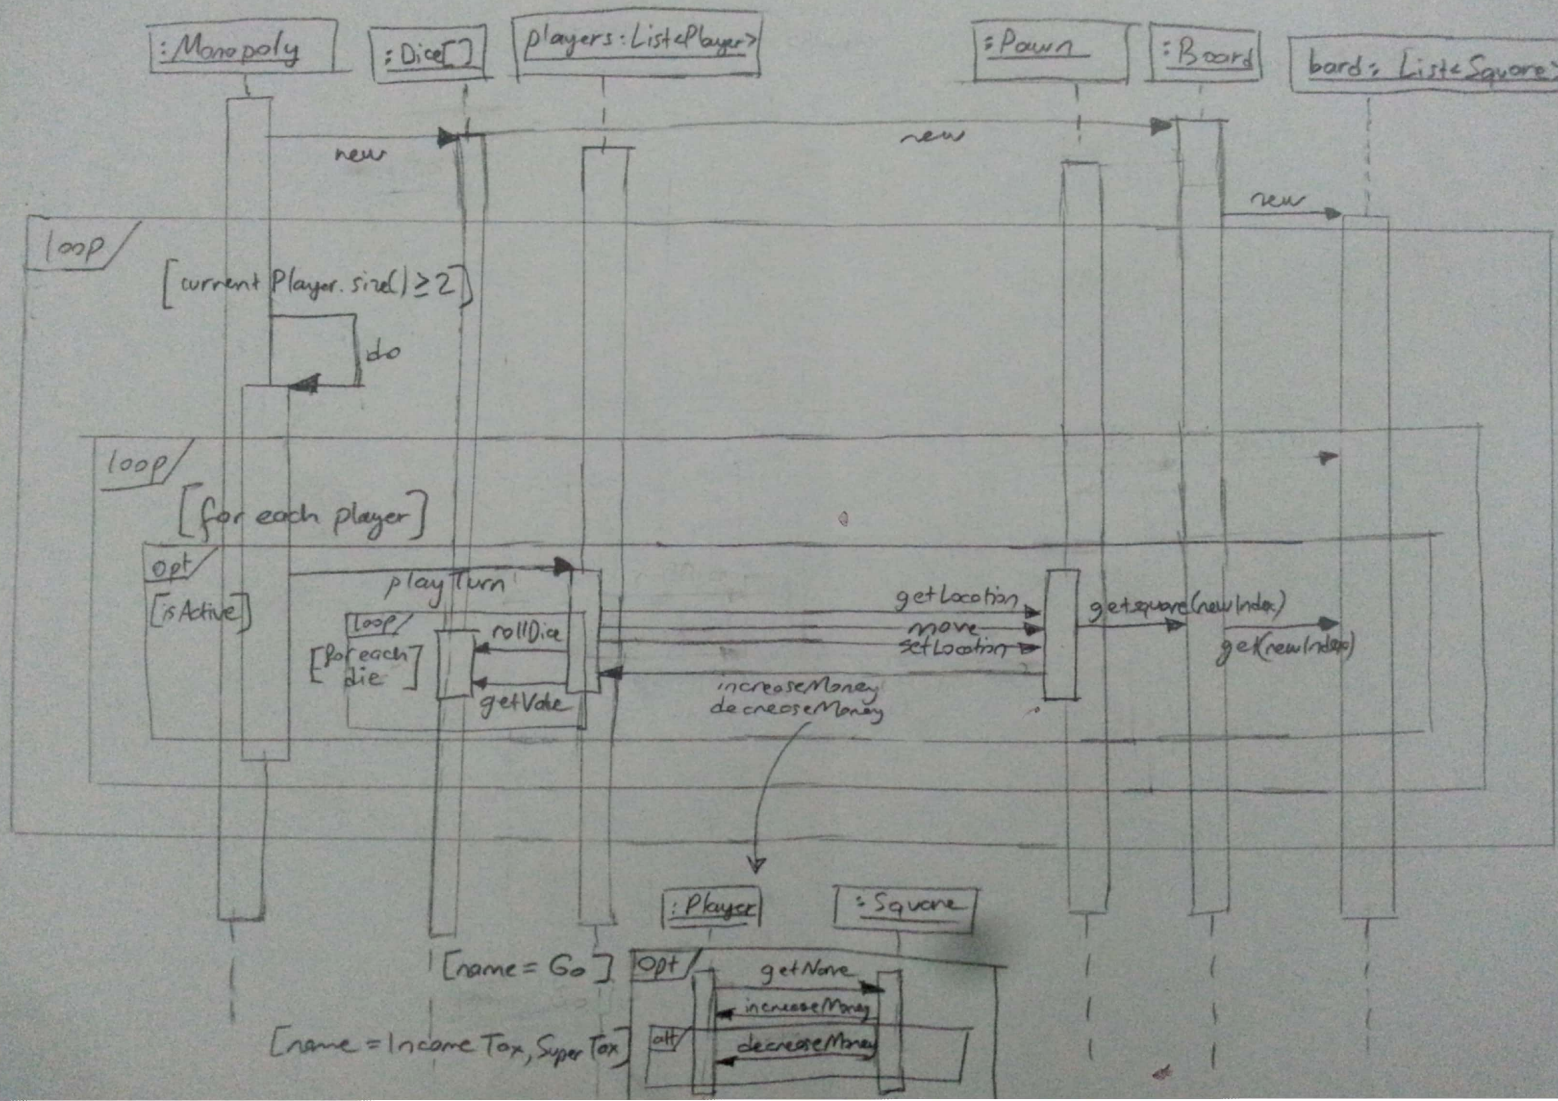 :Monopoly
:Dice[]
players:List<Player>
:Pawn
:Board
bard: List<Square>
new
new
new
loop
[current Player.size() ≥ 2]
do
loop
[for each player]
opt
[isActive]
playTurn
loop
[for each
die]
rollDice
getValue
getLocation
move
setLocation
getsquare(newIndex)
get(newIndex)
increaseMoney
decreaseMoney
:Player
:Square
[name = Go]
Opt
getName
increaseMoney
[name = Income Tax, Super Tax]
alt
decreaseMoney